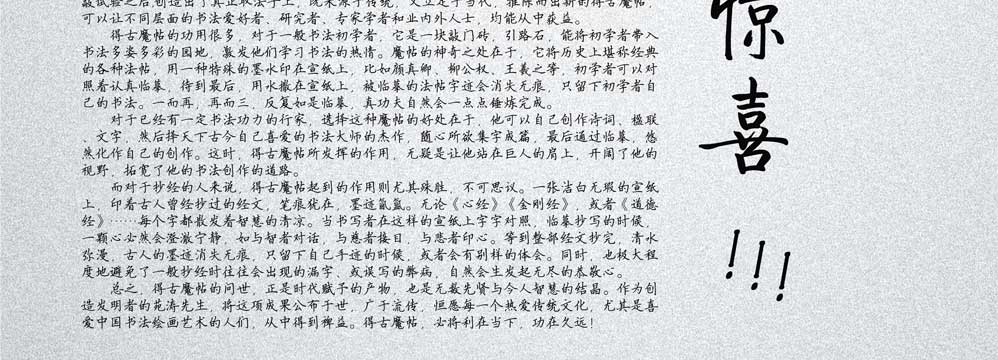 敲试验之后创造出了真正取法乎上，既来源于传统，又立足于当代，雅陈而出新的得古魔帖，
可以让不同层面的书法爱好者、研究者、专家学者和业内外人士，均能从中获益。
得古魔帖的功用很多，对于一般书法初学者，它是一块敲门砖，引路石，能将初学者带入
书法多姿多彩的园地，激发他们学习书法的热情。魔帖的神奇之处在于，它将历史上堪称经典
的各种法帖，用一种特殊的墨水印在宣纸上，比如颜真卿、柳公权、王羲之等，初学者可以对
照着认真临摹，待到最后，用水撒在宣纸上，被临摹的法帖字迹会消失无痕，只留下初学者自
己的书法。一而再，再而三，反复如是临摹，真功夫自然会一点点锤炼完成。
对于已经有一定书法功力的行家，选择这种魔帖的好处在于，他可以自己创作诗词、楹联
、文字，然后择天下古今自己喜爱的书法大师的杰作，随心所欲集字成篇，最后通过临摹，悠
然化作自己的创作。这时，得古魔帖所发挥的作用，无疑是让他站在巨人的肩上，开阔了他的
视野，拓宽了他的书法创作的道路。
而对于抄经的人来说，得古魔帖起到的作用则尤其殊胜，不可思议。一张洁白无瑕的宣纸
上，印着古人曾经抄过的经文，笔痕犹在，墨迹氤氲。无论《心经》《金刚经》，或者《道德
经》……每个字都散发着智慧的清凉。当书写者在这样的宣纸上字字对照，临摹抄写的时候，
一颗心必然会澄澈宁静，如与智者对话，与慈者接目，与悲者印心。等到整部经文抄完，清水
弥漫，古人的墨迹消失无痕，只留下自己手迹的时候，或者会有别样的体会。同时，也极大程
度地避免了一般抄经时往往会出现的漏字、或误写的弊病，自然会生发起无尽的恭敬心。
总之，得古魔帖的问世，正是时代赋予的产物，也是无数先贤与今人智慧的结晶。作为创
造发明者的苑涛先生，将这项成果公布于世，广于流传，恒愿每一个热爱传统文化，尤其是喜
爱中国书法绘画艺术的人们，从中得到裨益。得古魔帖，必将利在当下，功在久远！
惊喜!!!